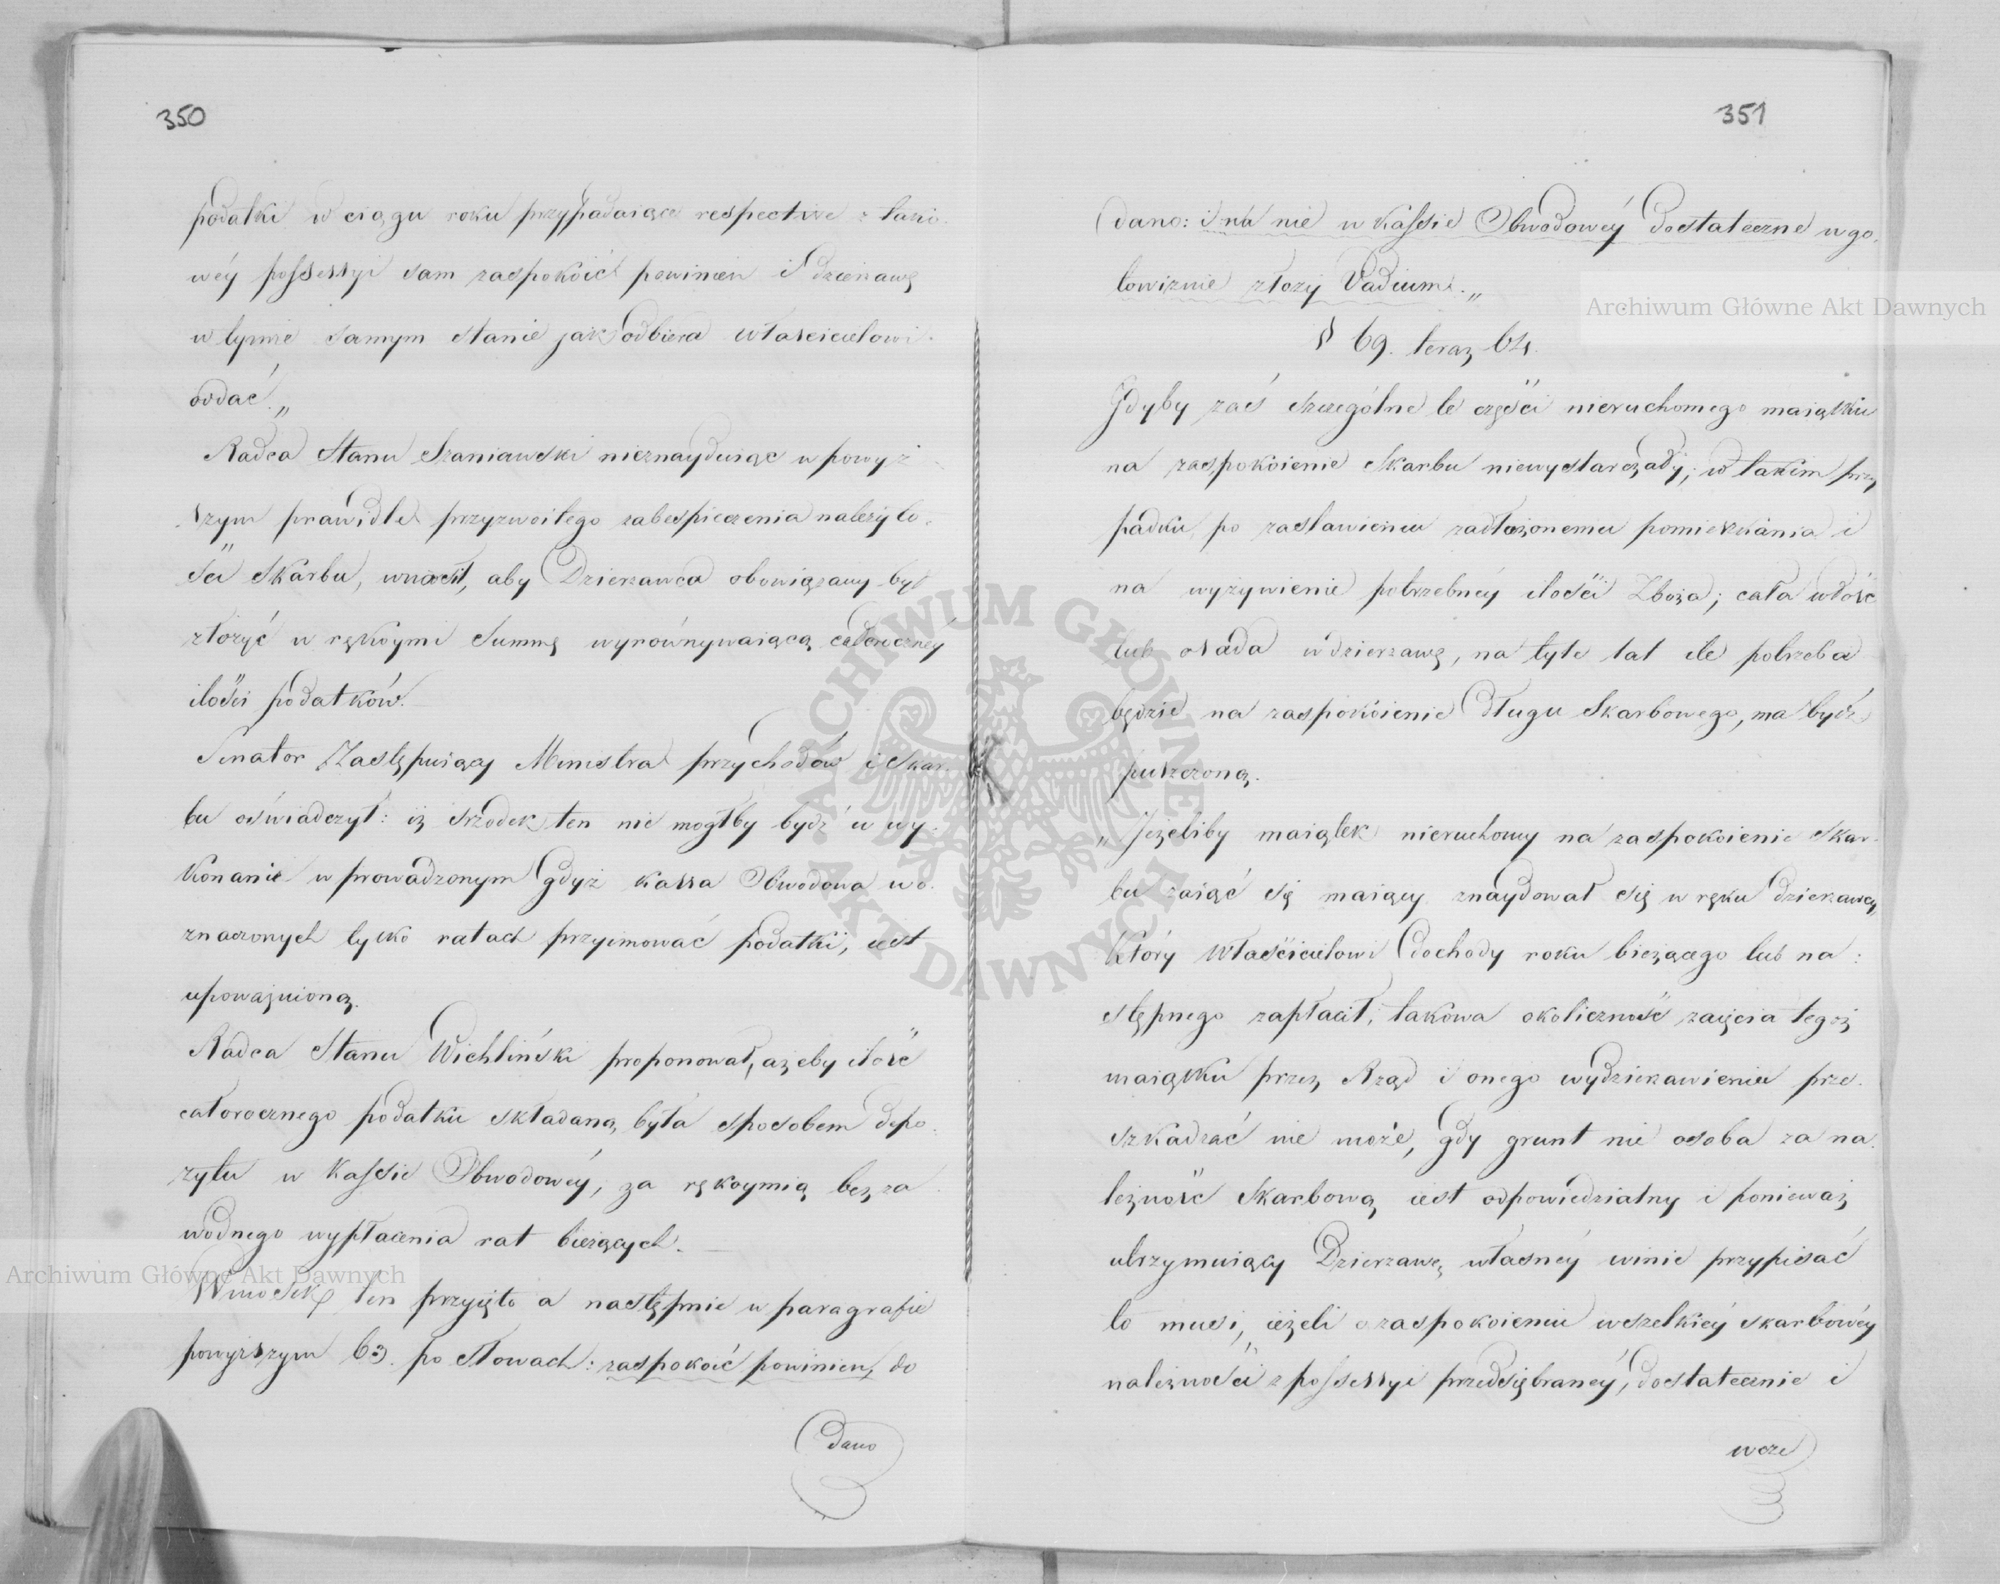 350
podatki w ciągu roku przypadaiące respective z takio-
wéy possessyi sam zaspokoić powinien i dzierżawę
w tymże samym stanie jak odbiera właścicielowi
oddać.„
Radca Stanu Szaniawski nieznayduiąc w powyż-
szym prawidle przyzwoitego zabespieczenia należyto-
ści Skarbu, wnosił, aby Dzierżawca obowiązany był
złożyć w rękoymi Summę wyrównywaiącą całoroczney
ilości podatków.
Senator Zastępuiący Ministra przychodów i Skar-
bu oświadczył: iż śrzodek ten nie mogłby bydź w wy-
konanie wprowadzonym Gdyż kassa Obwodowa w o-
znaczonych tylko ratach przyimować podatki, iest
upoważnioną.
Radca Stanu Wichliński proponował, ażeby ilość
całorocznego podatku składaną była sposobem depo-
zytu w Kassie Obwodowéy, za rękoymią bezza-
wodnego wypłacenia rat bieżących.
Wniosek ten przyięto a następnie w paragrafie
powyższym 63. po słowach: zaspokoić powinien, do
dano
351
dano: i na nie w Kassie Obwodowéy dostateczne w go-
towiznie złoży Vadium.„
§ 69. teraz 64.
Gdyby zaś szczególne te części nieruchomego maiątku
na zaspokoienie Skarbu niewystarczały; w takim przy
padku, po zostawieniu zadłużonemu pomieszkania i
na wyżywienie potrzebnéy ilości Zboża; cała włość
lub osada w dzierżawę, na tyle lat ile potrzeba
będzie na zaspokoienie długu Skarbowego, ma bydź
puszczoną.
„Jeżeliby maiątek nieruchomy na zaspokoienie Skar-
bu zaiąć się maiący znaydował się w ręku dzierżawcy,
który właścicielowi dochody roku bieżącego lub na-
stępnego zapłacił, takowa okoliczność zaięcia tegoż
maiątku przez Rząd i onego wydzierżawienia prze-
szkadzać nie może, gdy grunt nie osoba za na-
leżność Skarbową iest odpowiedzialny i ponieważ
utrzymuiący Dzierżawę własnéy winie przypisać
to musi, ieżeli o zaspokoieniu wszelkiéy skarbowéy
należności z possessyi przedsiębranéy, dostatecznie i
wcze
Archiwum Główne Akt Dawnych
Archiwum Główne Akt Dawnych
ARCHIWUM GŁÓWNE AKT DAWNYCH